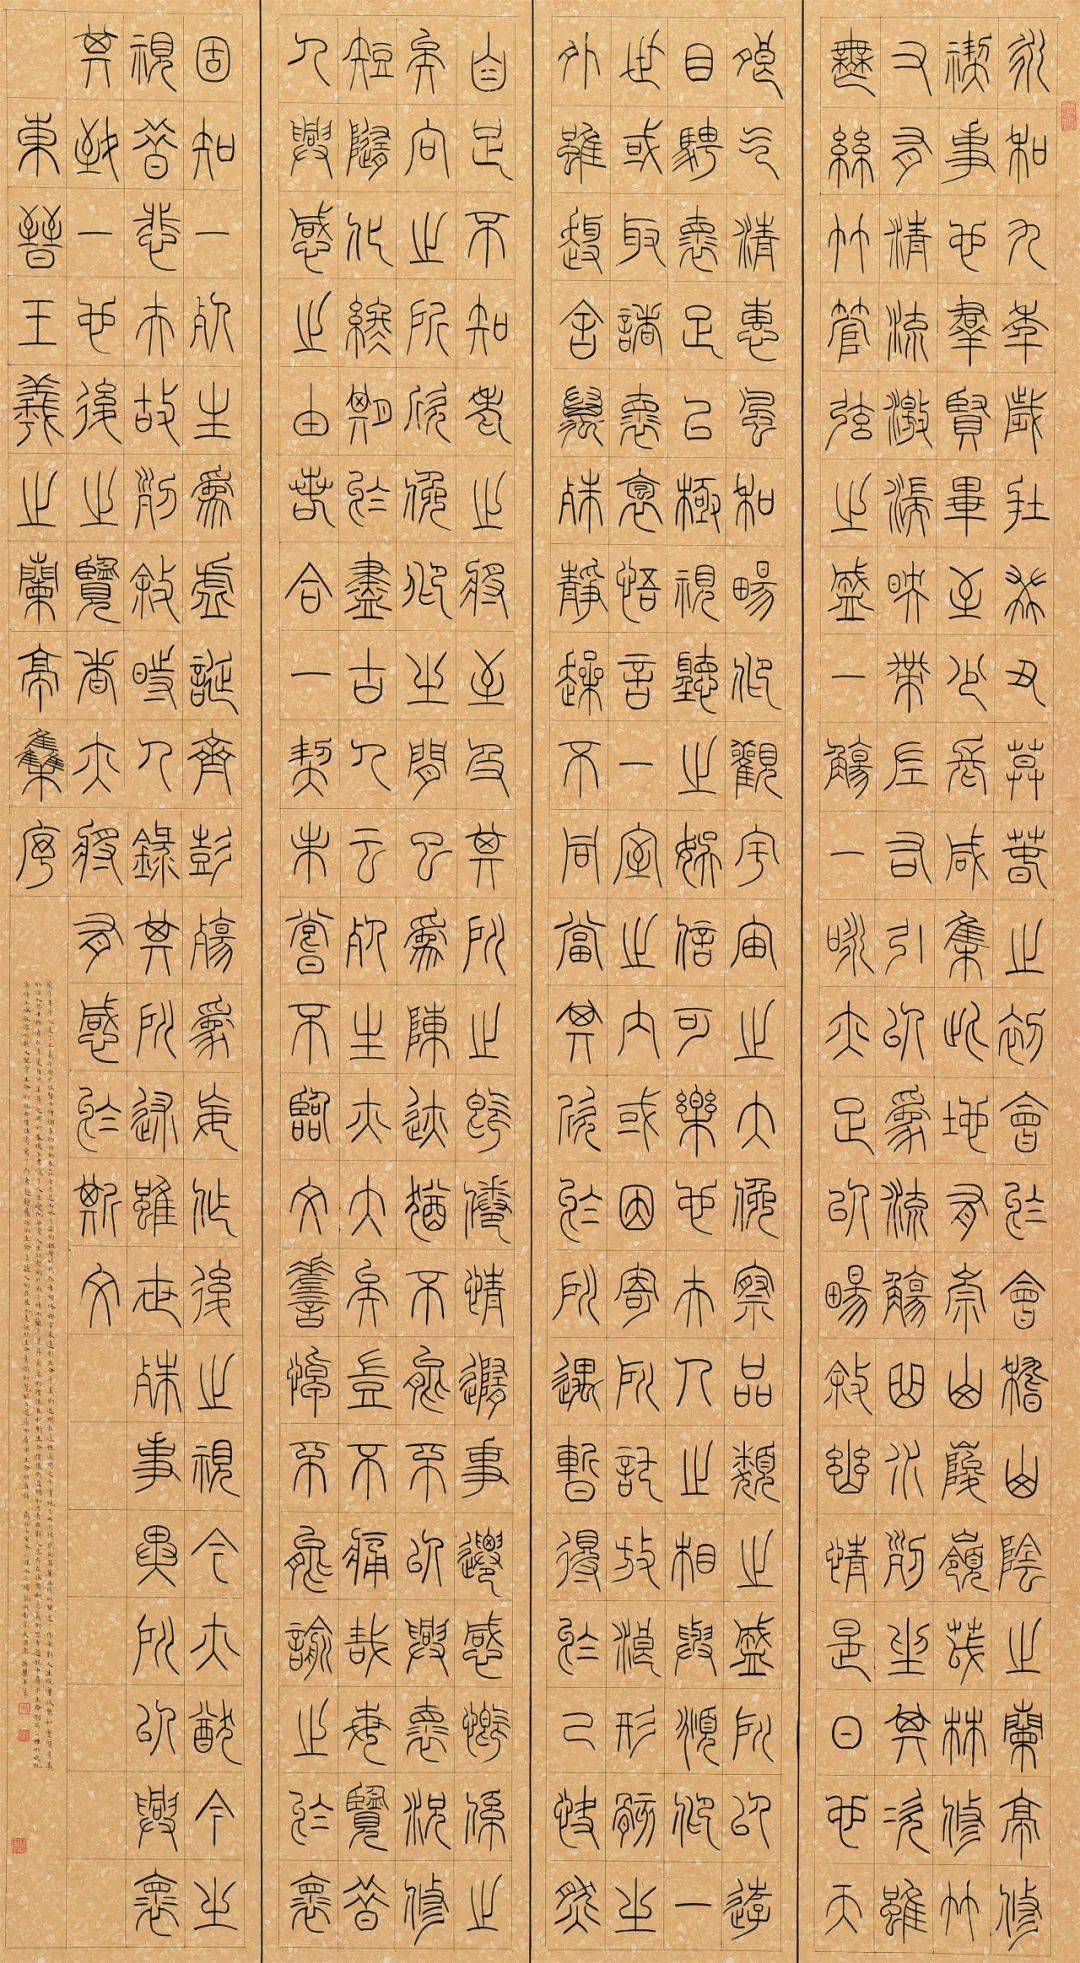 永和九年歲在癸丑暮春之初會於會稽山陰之蘭亭修
禊事也羣賢畢至少長咸集此地有崇山峻嶺茂林修竹
又有清流激湍映帶左右引以為流觴曲水列坐其次雖
無絲竹管弦之盛一觴一詠亦足以暢敘幽情是日也天
朗氣清惠風和暢仰觀宇宙之大俯察品類之盛所以遊
目騁懷足以極視聽之娛信可樂也夫人之相與俯仰一
世或取諸懷抱悟言一室之內或因寄所託放浪形骸之
外雖趣舍萬殊靜躁不同當其欣於所遇暫得於己快然
自足不知老之將至及其所之既倦情隨事遷感慨係之
矣向之所欣俯仰之間已為陳跡猶不能不以興懷況修
短隨化終期於盡古人云死生亦大矣豈不痛哉每覽昔
人興感之由若合一契未嘗不臨文嗟悼不能喻之於懷
固知一死生為虛誕齊彭殤為妄作後之視今亦猶今之
視昔悲夫故列敘時人錄其所述雖世殊事異所以興懷
其致一也後之覽者亦將有感於斯文
東晉王羲之蘭亭集序